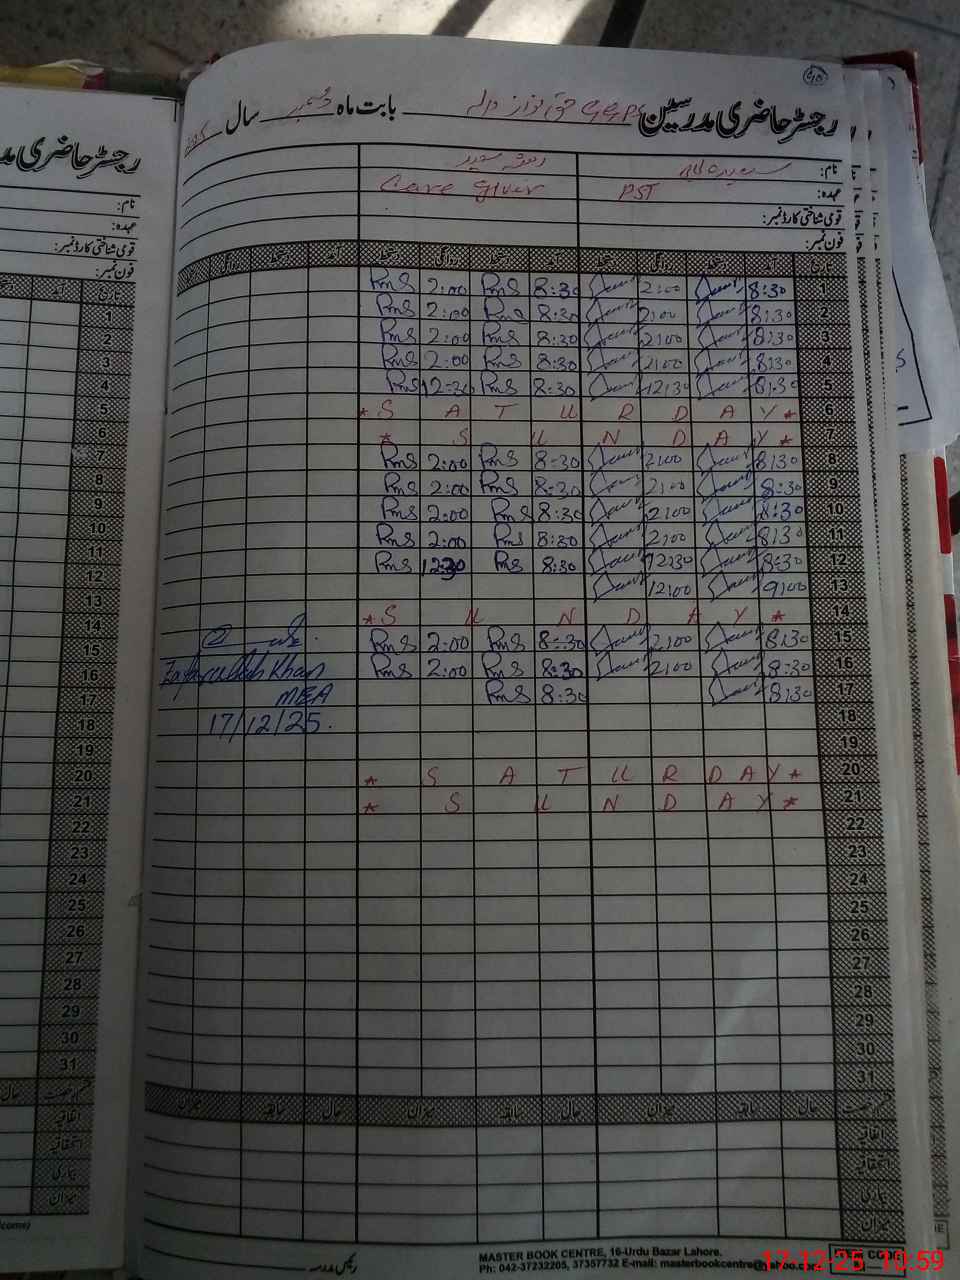 40
رجسٹر حاضری مدرسین GGPS حق نواز والہ بابت ماہ دسمبر سال
نام: سعیدہ
عہدہ: PST Care Giver
قومی شناختی کارڈ نمبر:
فون نمبر:
تاریخ آمد دستخط روانگی دستخط آمد دستخط روانگی دستخط آمد دستخط روانگی
1 8:30 2:00 8:30 Rms 2:00 Rms
2 8:30 2:00 8:30 Rms 2:00 Rms
3 8:30 2:00 8:30 Rms 2:00 Rms
4 8:30 2:00 8:30 Rms 2:00 Rms
5 8:30 12:30 8:30 Rms 12:30 Rms
6 * S A T U R D A Y *
7 * S U N D A Y *
8 8:30 2:00 8:30 Rms 2:00 Rms
9 8:30 2:00 8:30 Rms 2:00 Rms
10 8:30 2:00 8:30 Rms 2:00 Rms
11 8:30 2:00 8:30 Rms 2:00 Rms
12 8:30 12:30 8:30 Rms 12:30 Rms
13 9:00 12:00
14 * S U N D A Y *
15 8:30 2:00 8:30 Rms 2:00 Rms
16 8:30 2:00 8:30 Rms 2:00 Rms
17 8:30 8:30 Rms
Zafarullah Khan
MEA
17/12/25.
18
19
20 * S A T U R D A Y *
21 * S U N D A Y *
22
23
24
25
26
27
28
29
30
31
حال سابقہ میزان حال سابقہ میزان حال سابقہ میزان
اتفاقیہ
استحقاقیہ
بیماری
میزان
رئیس مدرسہ
MASTER BOOK CENTRE, 16-Urdu Bazar Lahore.
Ph: 042-37232205, 37357732 E-mail: masterbookcentre@yahoo.com
CODE
17-12-25 10:59
رجسٹر حاضری
نام:
عہدہ:
قومی شناختی کارڈ نمبر:
فون نمبر:
تاریخ آمد دستخط
1
2
3
4
5
6
7
8
9
10
11
12
13
14
15
16
17
18
19
20
21
22
23
24
25
26
27
28
29
30
31
اتفاقیہ
استحقاقیہ
بیماری
میزان